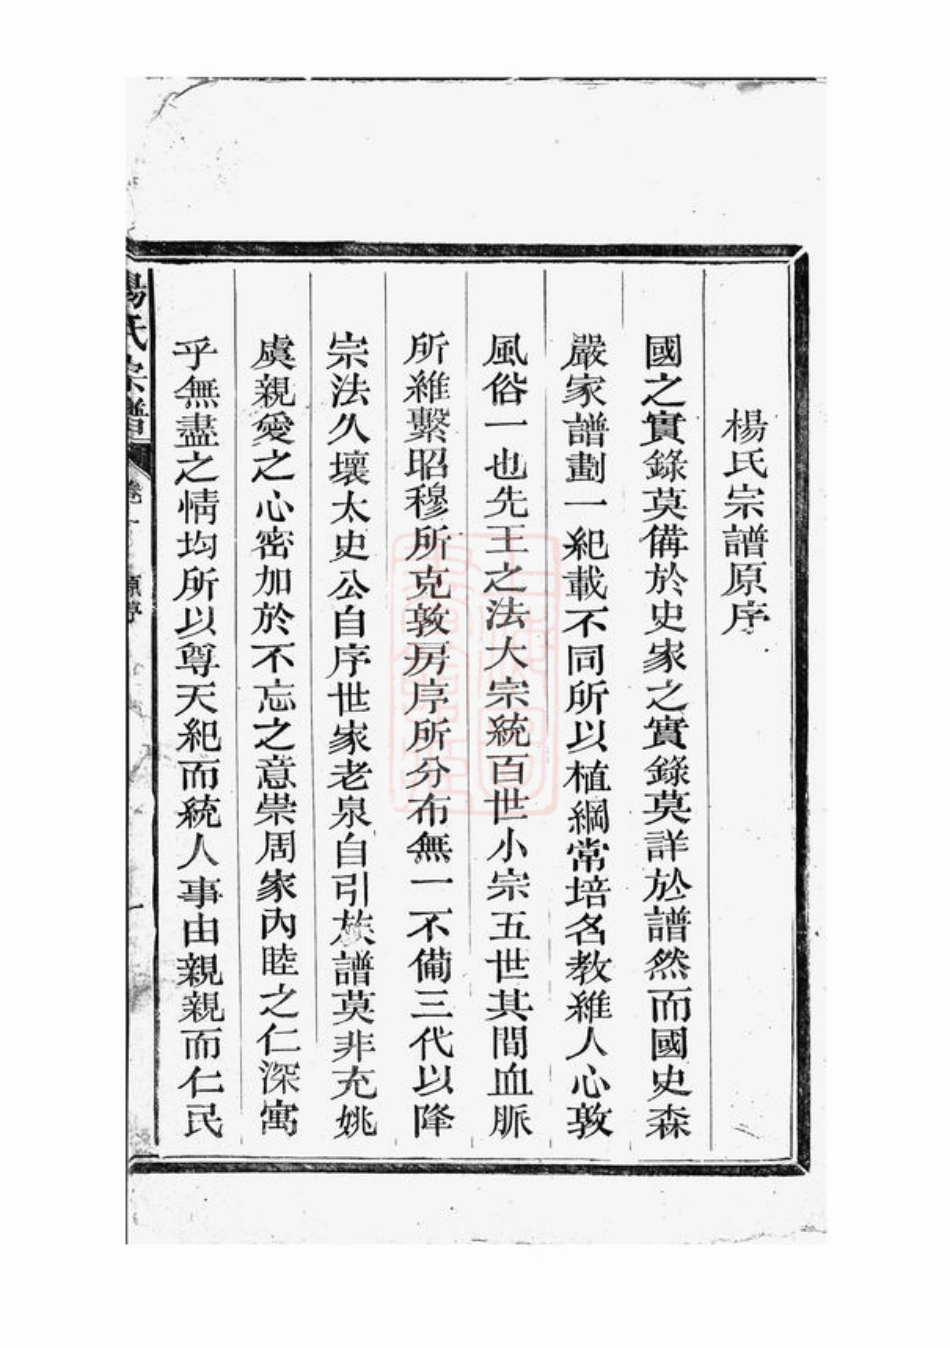 楊氏宗譜原序
國之實錄莫備於史家之實錄莫詳於譜然而國史森
嚴家譜劃一紀載不同所以植綱常培名教維人心敦
風俗一也先王之法大宗統百世小宗五世其間血脈
所維繫昭穆所克敦房序所分布無一不備三代以降
宗法久壞太史公自序世家老泉自引族譜莫非充姚
虞親愛之心密加於不忘之意崇周家內睦之仁深寓
乎無盡之情均所以尊天紀而統人事由親親而仁民
楊氏宗譜
卷一
原序
一